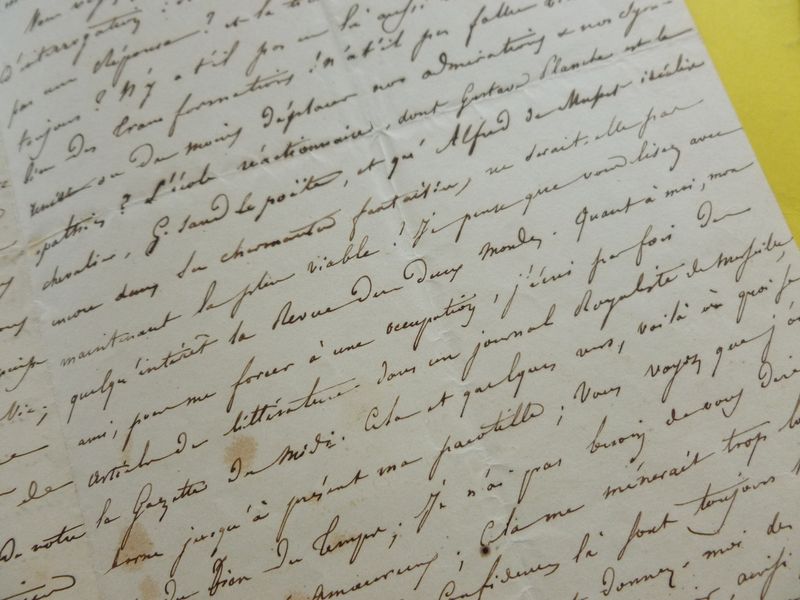 Nous
d'interrogation :
pas une réponse ? et la
toujours ? N'y a t'il pas eu là aussi
bien des transformations ! n'a t'il pas fallu
ou du moins déplacer nos admirations & nos sym-
pathies ? L'école réactionnaire, dont Gustave Planche est le
chevalier, G. Sand le poëte, et qu'Alfred de Musset idéalise
encore dans ses charmantes fantaisies, ne serait-elle pas
maintenant la plus viable ? Je pense que vous lisez avec
quelqu'intérêt la Revue des deux Mondes. Quant à moi, mon
ami, pour me forcer à une occupation, j'écris par fois des
articles de littérature dans un journal Royaliste de Marseille,
la Gazette du Midi. Cela et quelques vers, voilà à quoi se
borne jusqu'à présent ma pacotille ; Vous voyez que j'ai
du Bien du Temps ; Je n'ai pas besoin de vous dire
amoureux ; Cela me mènerait trop
Confidences là sont toujours
donnez-moi des
ainsi